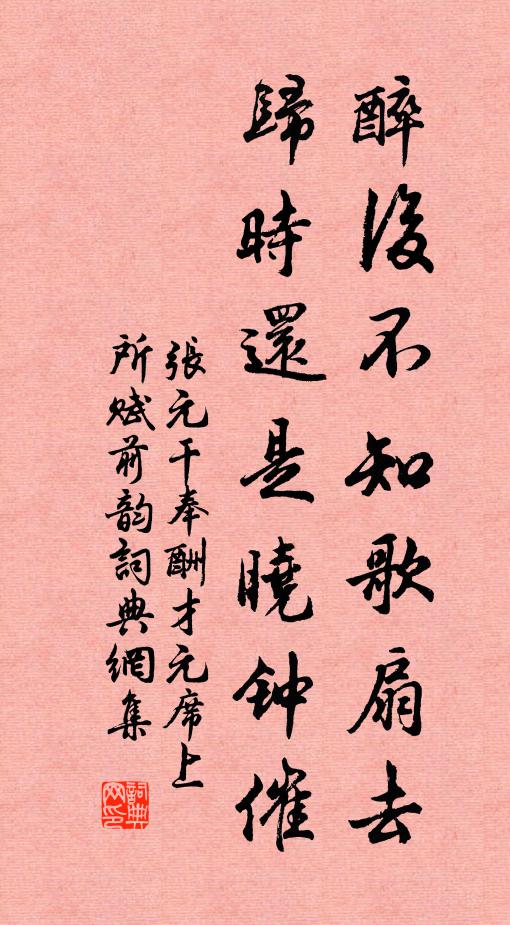 醉後不知歌扇去
歸時還是曉钟催
張元干奉酬才元席上
所賦前韵詞典網集
詞典网印